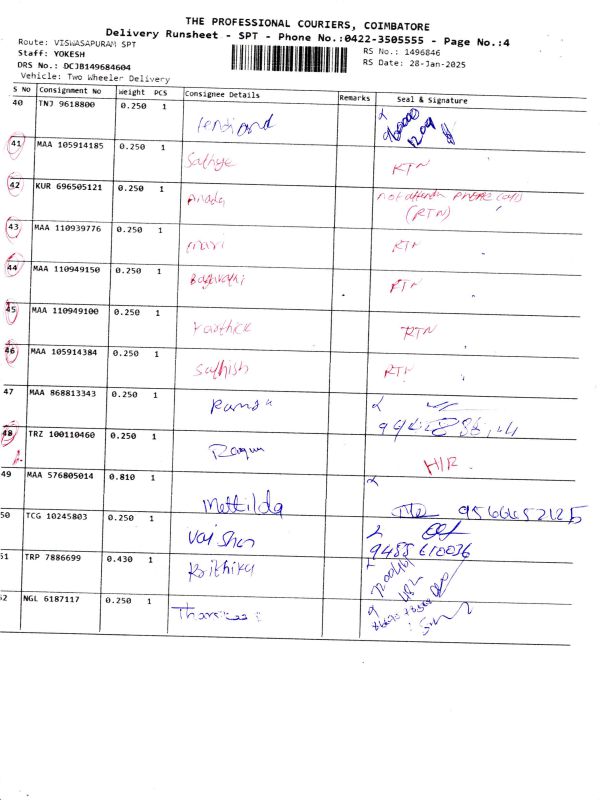 THE PROFESSIONAL COURIERS, COIMBATORE
Delivery Runsheet - SPT - Phone No.:0422-3505555 - Page No.:4
Route: VISWASAPURAM SPT
Staff: YOKESH
DRS No.: DCJB149684604
Vehicle: Two Wheeler Delivery
RS No.: 1496846
RS Date: 28-Jan-2025
S No Consignment No Weight PCS Consignee Details Remarks Seal & Signature
40 TNJ 9618800 0.250 1
41 MAA 105914185 0.250 1 Sathya RTN
42 KUR 696505121 0.250 1 (RTN)
43 MAA 110939776 0.250 1 mari RTN
44 MAA 110949150 0.250 1 Bagavathi RTN
45 MAA 110949100 0.250 1 Karthick RTN
46 MAA 105914384 0.250 1 Sathish RTN
47 MAA 868813343 0.250 1
48 TRZ 100110460 0.250 1 H/R
49 MAA 576805014 0.810 1 Mettilda
50 TCG 10245803 0.250 1 9488610036
51 TRP 7886699 0.430 1 Krithika
52 NGL 6187117 0.250 1